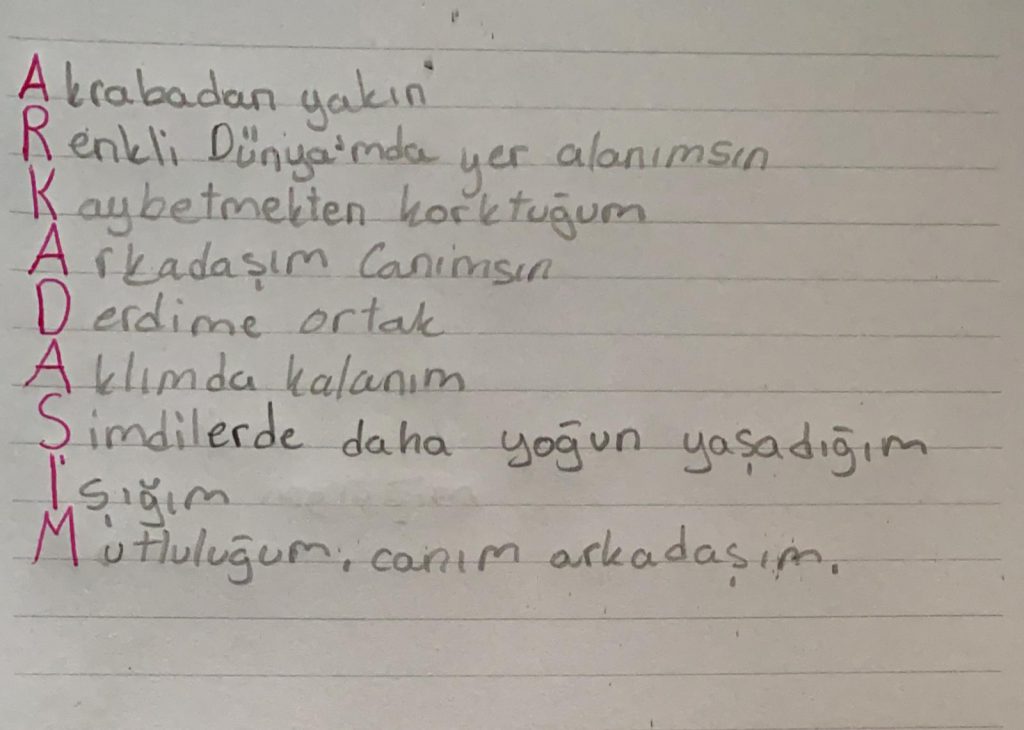 Akrabadan yakın
Renkli Dünya'mda yer alanımsın
Kaybetmekten korktuğum
Arkadaşım Canımsın
Derdime ortak
Aklımda kalanım
Şimdilerde daha yoğun yaşadığım
Işığım
Mutluluğum, canım arkadaşım.